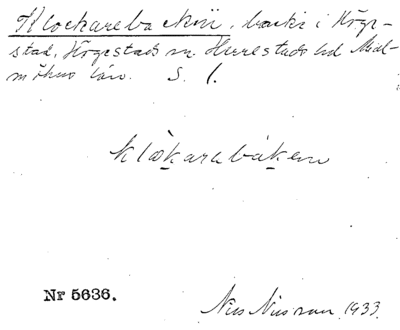 Klockarebacken, backe i Högestad, Högestads sn. Herrestads hd Malmöhus län. S. 1.
klåkarabakenn
Nr 5636.
Nils Nilsson 1933.